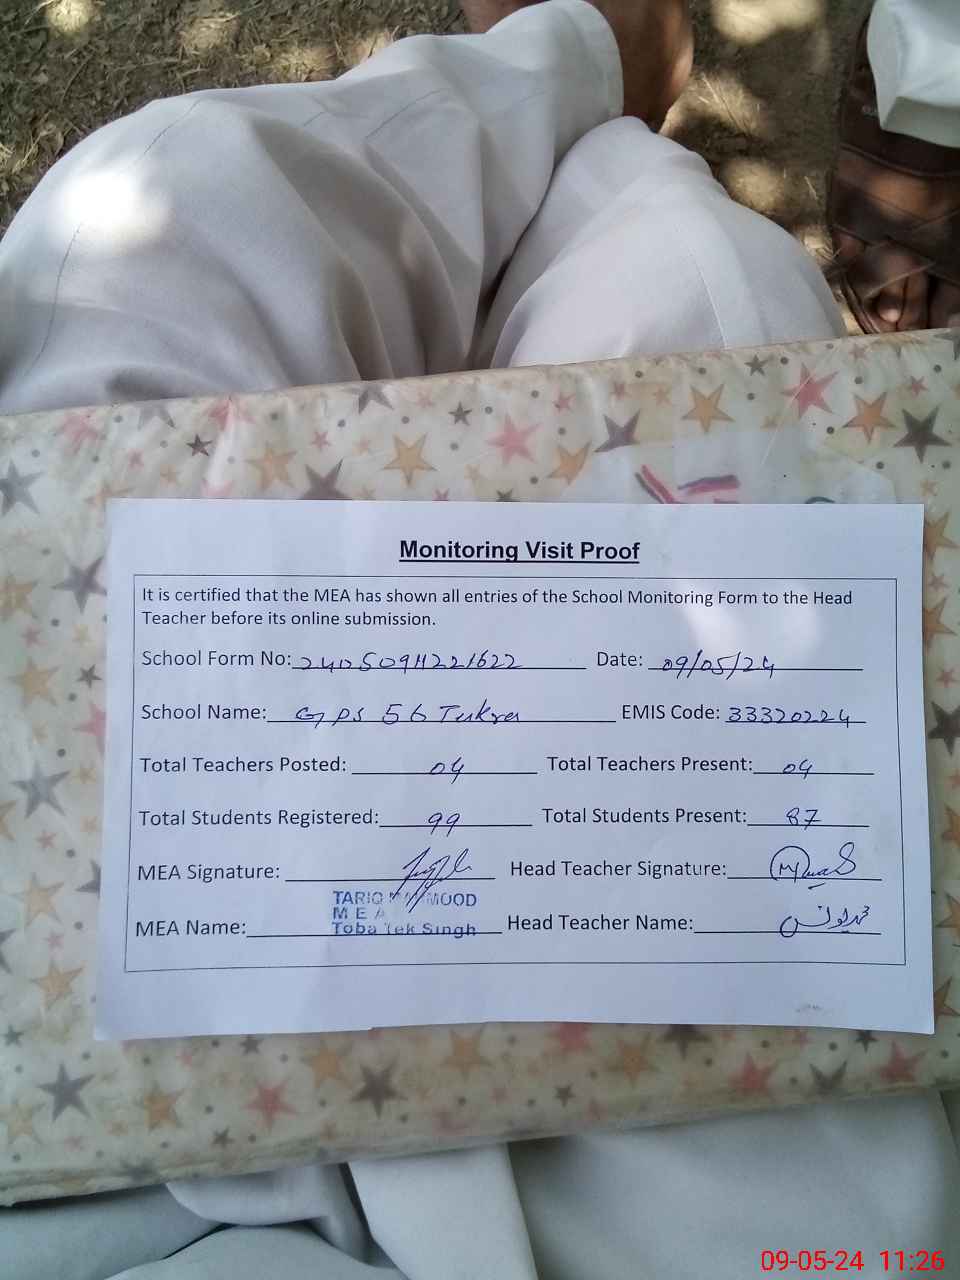 Monitoring Visit Proof
It is certified that the MEA has shown all entries of the School Monitoring Form to the Head
Teacher before its online submission.
School Form No: 24050911221622 Date: 09/05/24
School Name: GPS 56 Tukra EMIS Code: 33320224
Total Teachers Posted: 04 Total Teachers Present: 04
Total Students Registered: 99 Total Students Present: 87
MEA Signature: Head Teacher Signature:
TARIQ MEHMOOD
MEA
MEA Name: Toba Tek Singh Head Teacher Name: محمد یونس
09-05-24 11:26